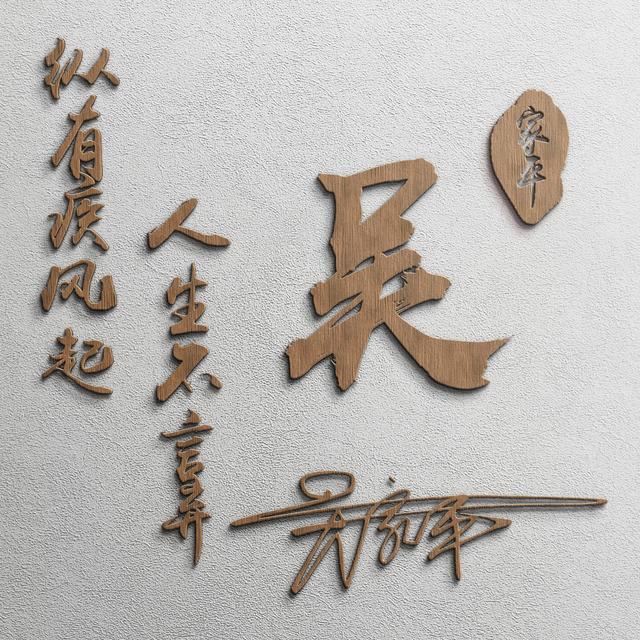 纵有疾风起
人生不言弃
吴
家平
吴家平